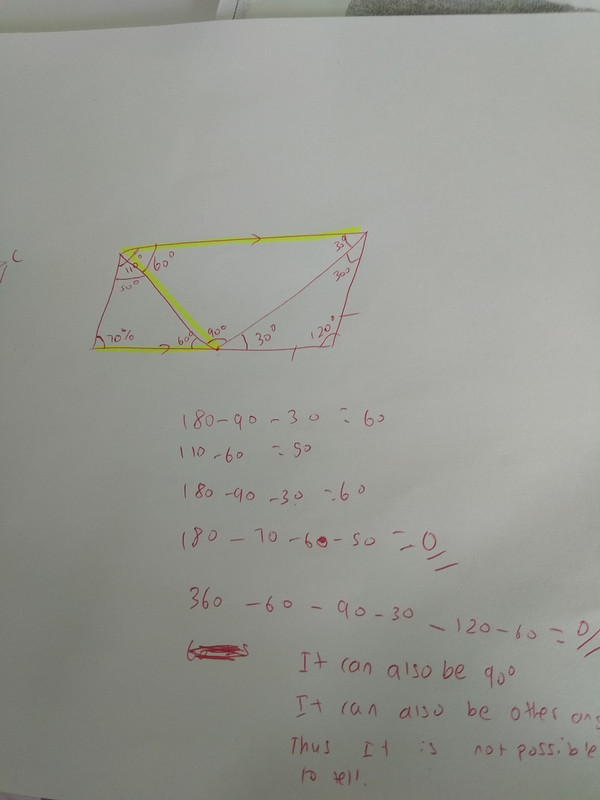 C
110°
60°
50°
30°
30°
70°
60°
90°
30°
120°
180-90-30=60
110-60=50
180-90-30=60
180-70-60-50=0
360-60-90-30-120-60=0
It can also be 90°
It can also be other
Thus It is not possible
to tell.